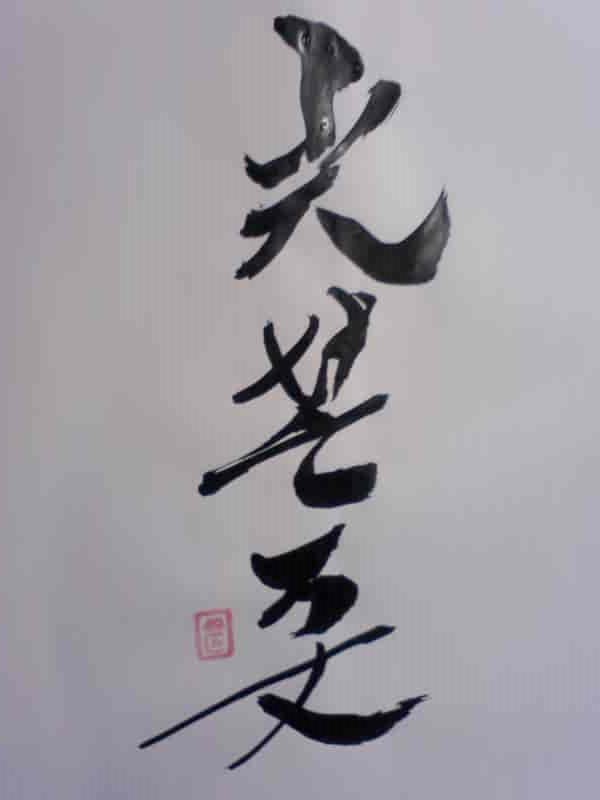 光芒万丈